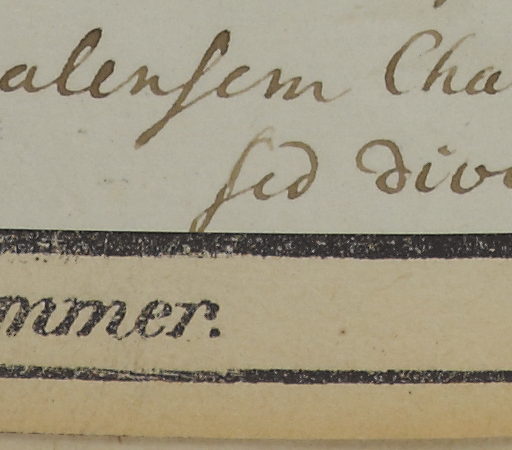 alensem Cha
sed divi
mmer.